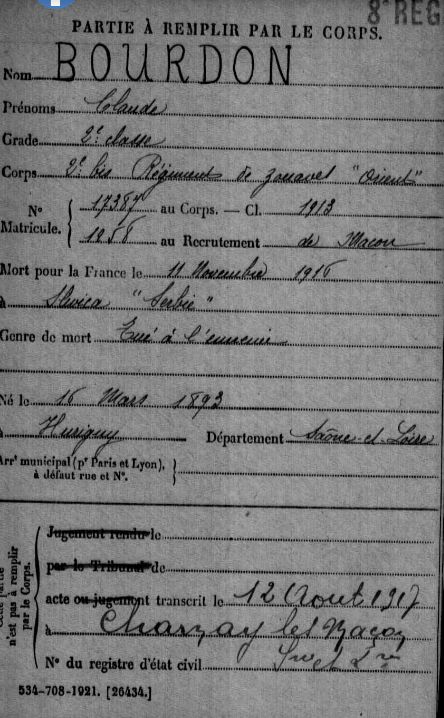 8e REG
PARTIE À REMPLIR PAR LE CORPS.
Nom BOURDON
Prénoms Claude
Grade 2e classe
Corps 2e bis Régiment de zouaves "Orient"
No Matricule. { 17387 au Corps. — Cl. 1913
1056 au Recrutement de Macon
Mort pour la France le 11 Novembre 1916
à Slivica "Serbie"
Genre de mort Tué à l'ennemi
Né le 16 Mars 1893
à Hurigny Département Saône-et-Loire
Arrt municipal (pr Paris et Lyon),
à défaut rue et No.
Cette partie n'est pas à remplir par le Corps.
Jugement rendu le
par le Tribunal de
acte ou jugement transcrit le 12 Aout 1917
à Charnay les Macon
No du registre d'état civil
534-708-1921. [26434.]